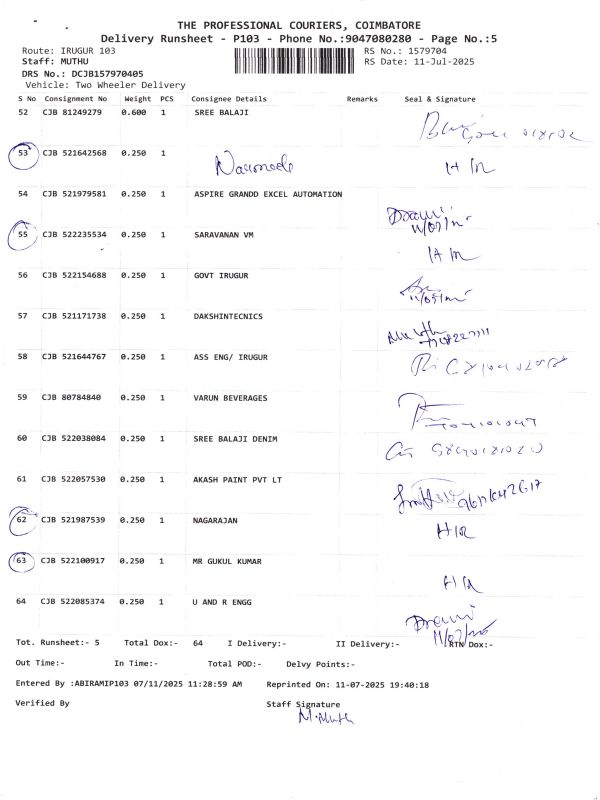 THE PROFESSIONAL COURIERS, COIMBATORE
Delivery Runsheet - P103 - Phone No.:9047080280 - Page No.:5
Route: IRUGUR 103 RS No.: 1579704
Staff: MUTHU RS Date: 11-Jul-2025
DRS No.: DCJB157970405
Vehicle: Two Wheeler Delivery
S No Consignment No Weight PCS Consignee Details Remarks Seal & Signature
52 CJB 81249279 0.600 1 SREE BALAJI
53 CJB 521642568 0.250 1
54 CJB 521979581 0.250 1 ASPIRE GRANDD EXCEL AUTOMATION
55 CJB 522235534 0.250 1 SARAVANAN VM
56 CJB 522154688 0.250 1 GOVT IRUGUR
57 CJB 521171738 0.250 1 DAKSHINTECNICS
58 CJB 521644767 0.250 1 ASS ENG/ IRUGUR
59 CJB 80784840 0.250 1 VARUN BEVERAGES
60 CJB 522038084 0.250 1 SREE BALAJI DENIM
61 CJB 522057530 0.250 1 AKASH PAINT PVT LT
62 CJB 521987539 0.250 1 NAGARAJAN
63 CJB 522100917 0.250 1 MR GUKUL KUMAR
64 CJB 522085374 0.250 1 U AND R ENGG
Tot. Runsheet:- 5 Total Dox:- 64 I Delivery:- II Delivery:- RTN Dox:-
Out Time:- In Time:- Total POD:- Delvy Points:-
Entered By :ABIRAMIP103 07/11/2025 11:28:59 AM Reprinted On: 11-07-2025 19:40:18
Verified By Staff Signature